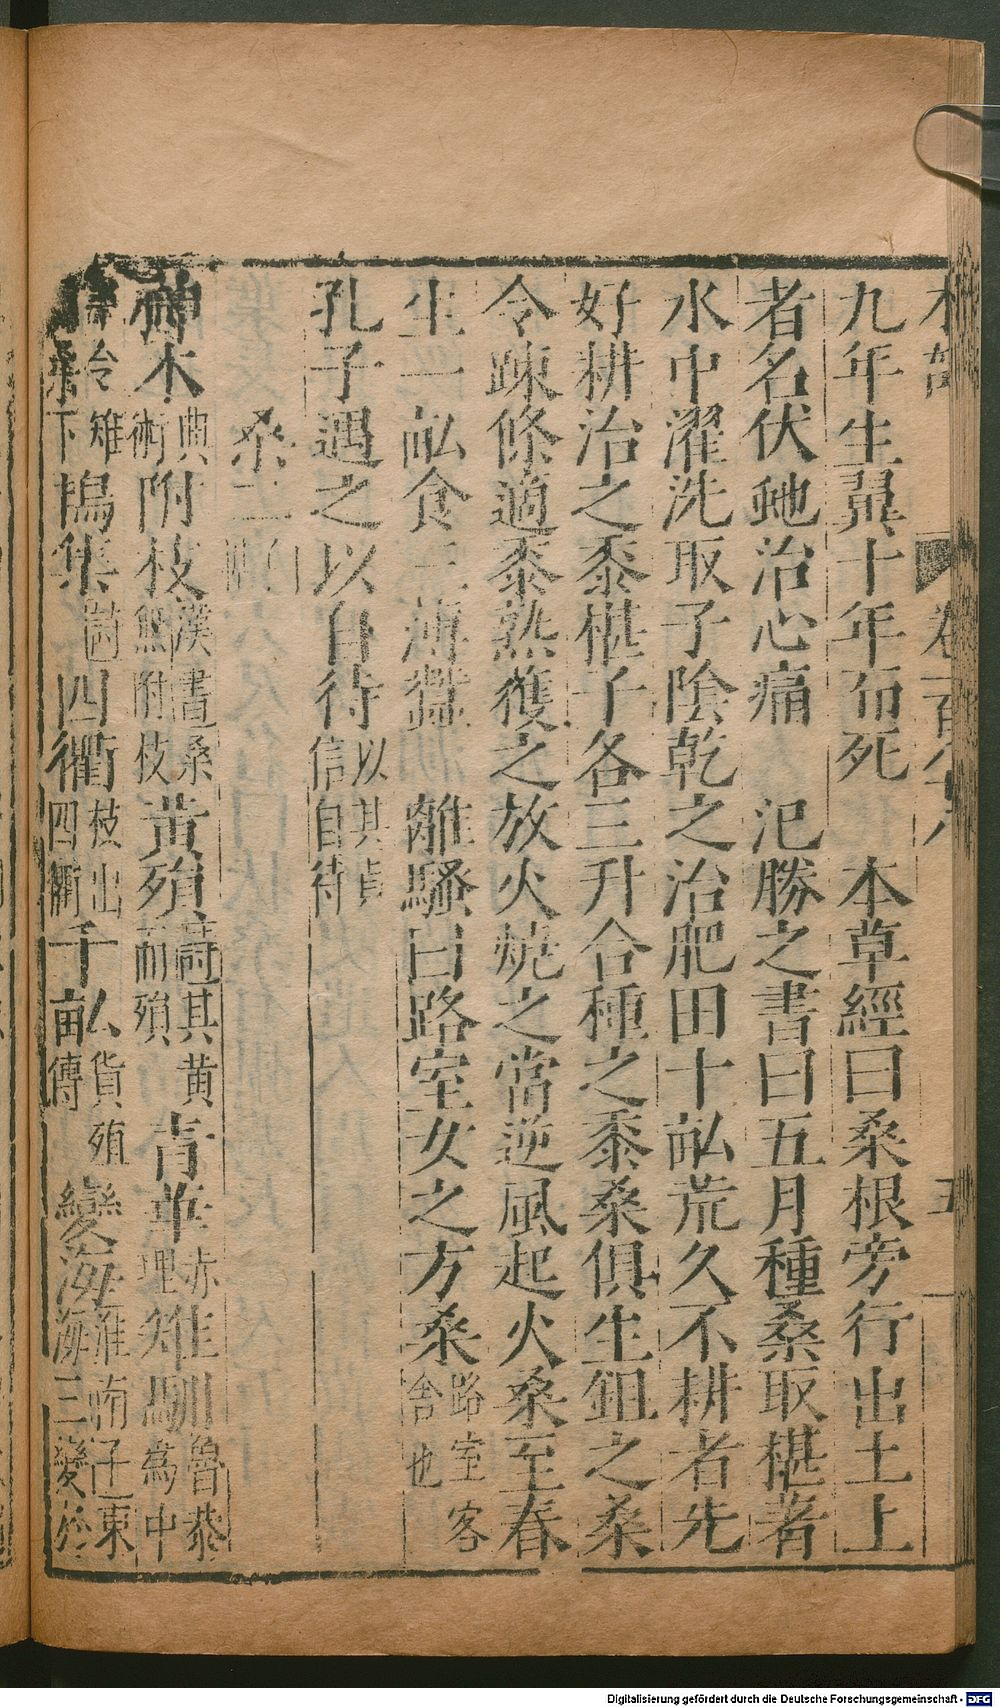 九年生翼十年而死　本草經曰桑根旁行出土上
者名伏虵治心痛　氾勝之書曰五月種桑取椹著
水中濯洗取子陰乾之治肥田十畝荒久不耕者先
好耕治之黍椹子各三升合種之黍桑俱生鉏之桑
令疎條適黍熟獲之放火燒之當逆風起火桑至春
生一畝食三薄蠶　離騷曰路室女之方桑路室客舍也
孔子遇之以自待以其貞信自待
桑二
神木典術附枝漢書桑無附枝黃殞詩其黄而殞青華赤埋雉馴魯恭為中
牟令雉桑下鳩集詩四衢枝出四衢千畝貨殖傳變海淮南子東海三變於
Digitalisierung gefördert durch die Deutsche Forschungsgemeinschaft - DFG